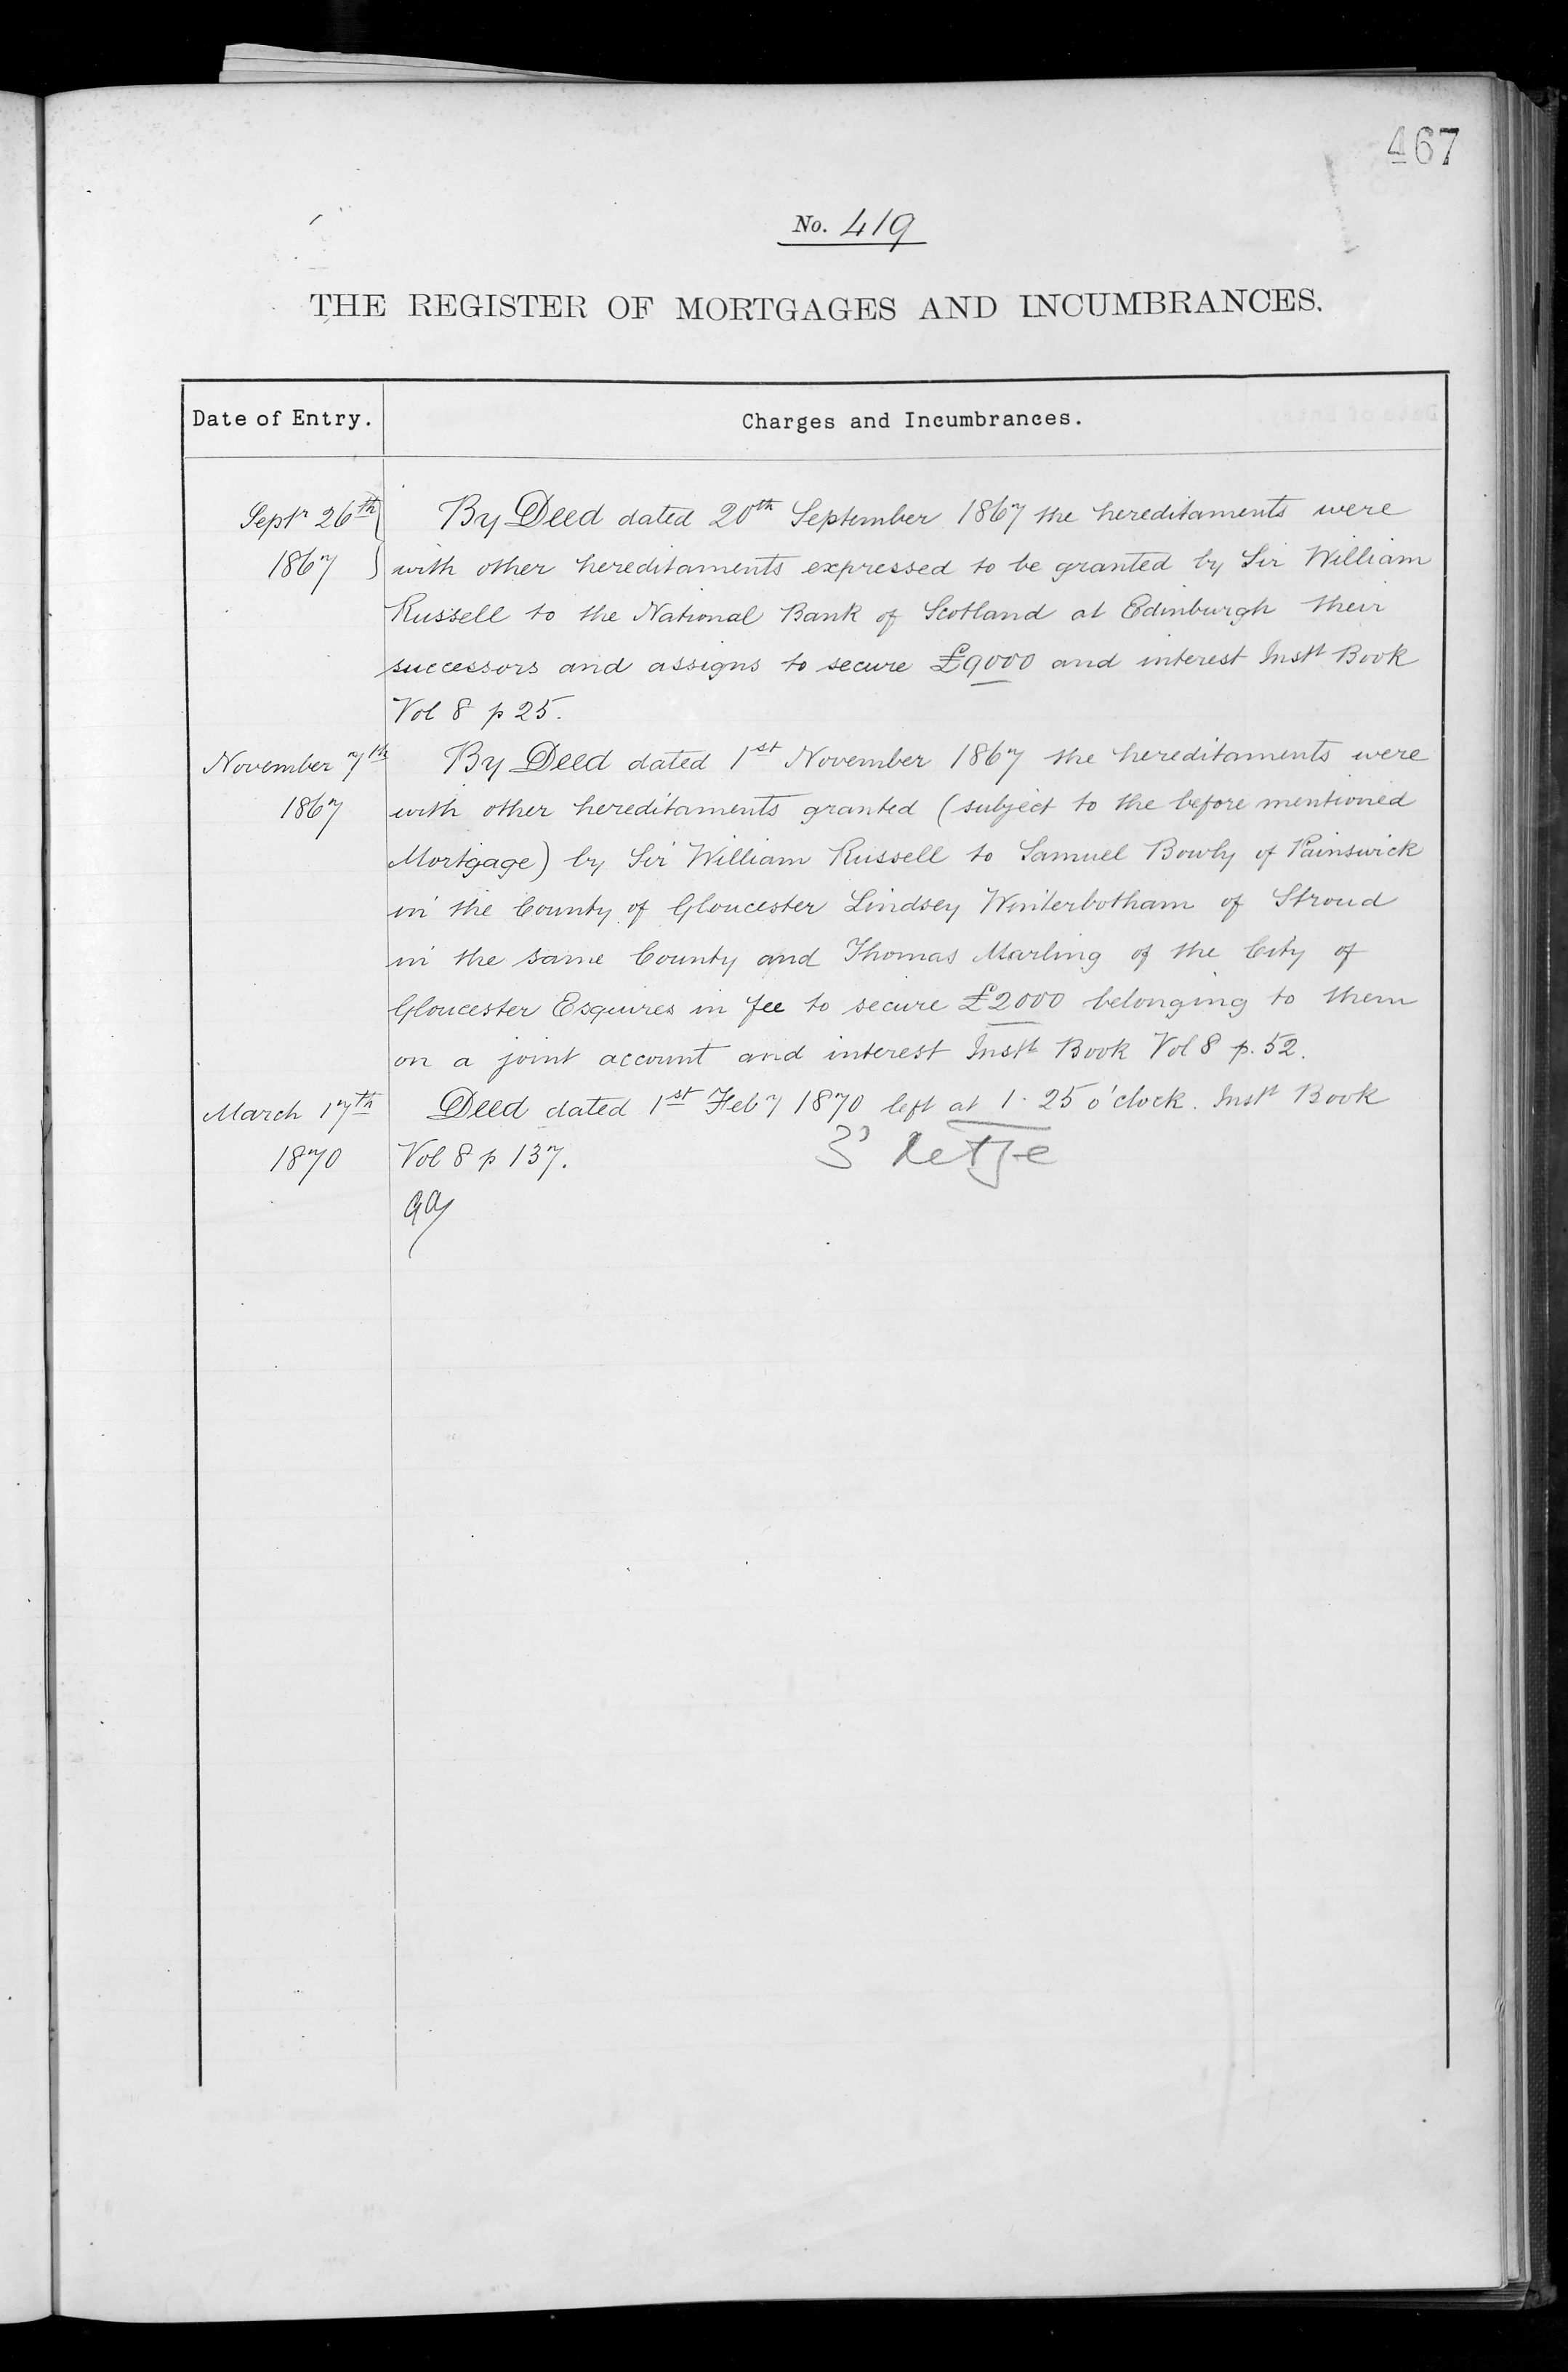 467
No. 419
THE REGISTER OF MORTGAGES AND INCUMBRANCES.
Date of Entry. Charges and Incumbrances.
Septr 26th By Deed dated 20th September 1867 the hereditaments were
1867 with other hereditaments expressed to be granted by Sir William
Russell to the National Bank of Scotland at Edinburgh their
successors and assigns to secure £9000 and interest Inst Book
Vol 8 p 25.
November 7th By Deed dated 1st November 1867 the hereditaments were
1867 with other hereditaments granted (subject to the before mentioned
Mortgage) by Sir William Russell to Samuel Bowly of Painswick
in the County of Gloucester Lindsey Winterbotham of Stroud
in the same County and Thomas Marling of the City of
Gloucester Esquires in fee to secure £2000 belonging to them
on a joint account and interest Inst Book Vol 8 p. 52.
March 17th Deed dated 1st Feby 1870 left at 1. 25 o'clock. Inst Book
1870 Vol 8 p 137.